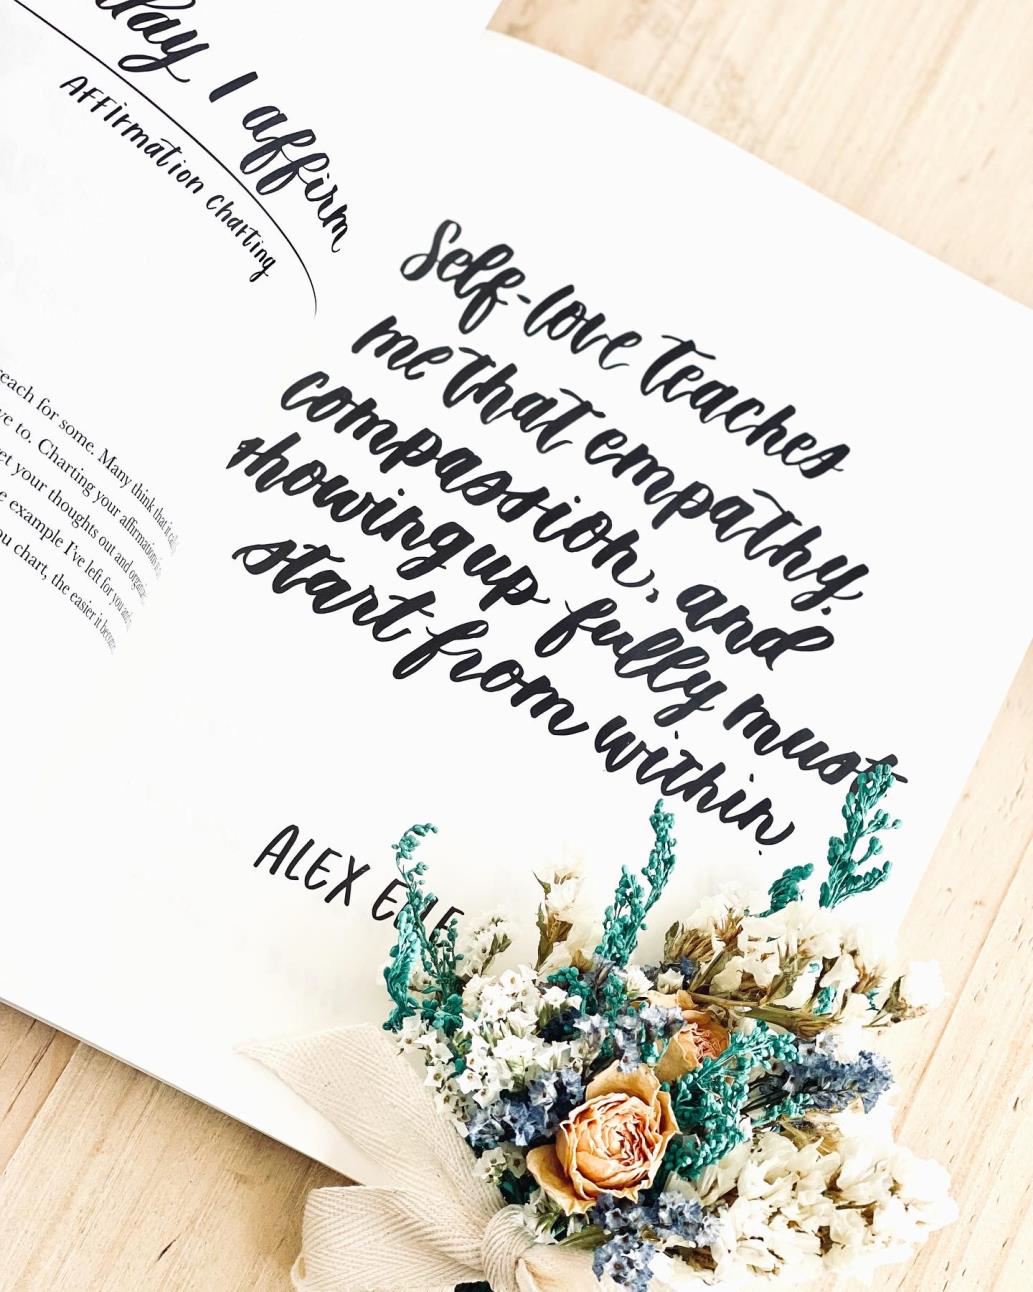 day I affirm
Affirmation charting
reach for some. Many think that it
to. Charting your affirmations
your thoughts out and
example I've left for you and
you chart, the easier it
Self-love teaches
me that empathy,
compassion, and
showing up fully must
start from within.
ALEX